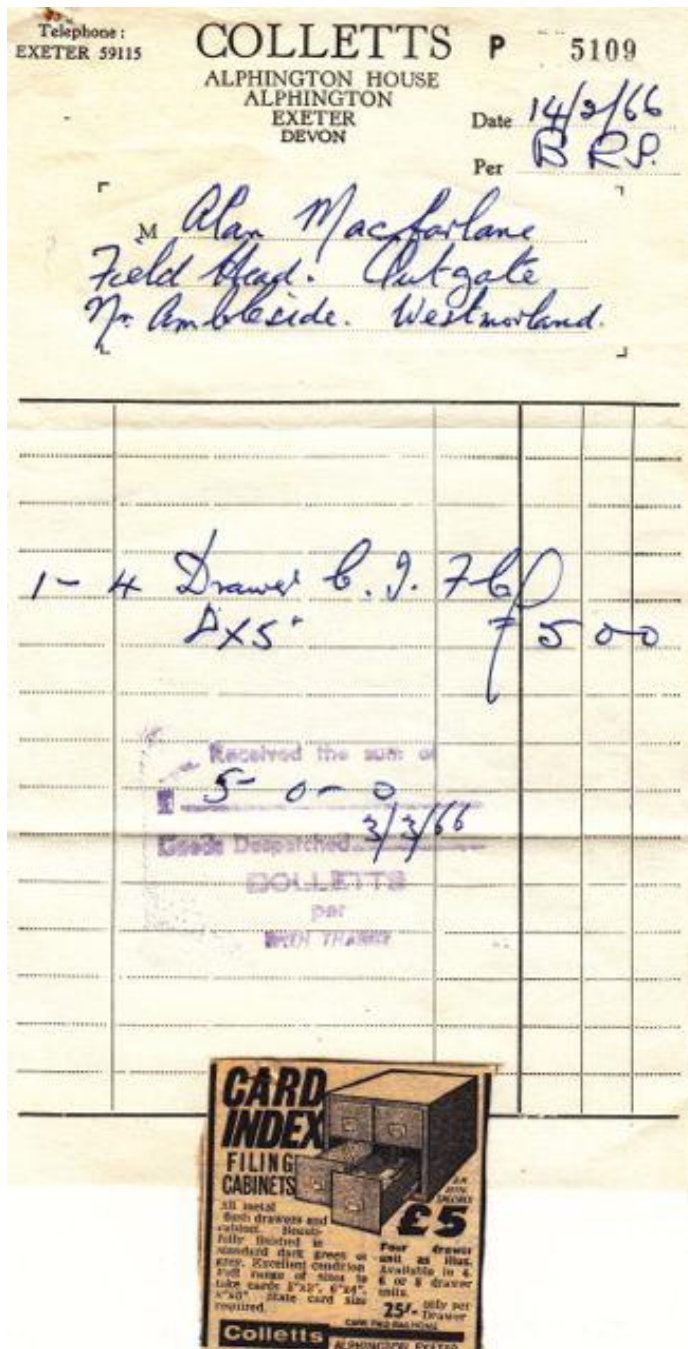 Telephone :
EXETER 59115
COLLETTS
ALPHINGTON HOUSE
ALPHINGTON
EXETER
DEVON
P 5109
Date 14/2/66
Per B R P.
M Alan Macfarlane
Field Head. Outgate
Nr. Ambleside. Westmorland.
1 - 4 Drawer C. I. F C
8 x 5" £ 5 0 0
Received the sum of
£ 5 - 0 - 0
Goods Despatched 3/3/66
COLLETTS
per
WITH THANKS
CARD
INDEX
FILING
CABINETS
£5
All metal
flush drawers and
cabinet. Beauti-
fully finished in
standard dark green or
grey. Excellent condition
Full range of sizes to
take cards 5"x3", 6"x4",
8"x5" State card size
required.
Four drawer
unit as illus.
Available in 4,
6 or 8 drawer
units.
25/- only per
Drawer
CARR. PAID MAINLAND
Colletts ALPHINGTON, EXETER